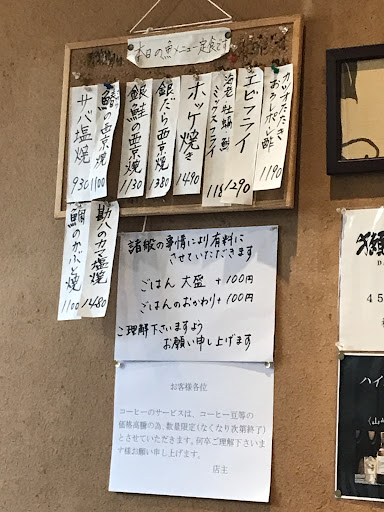 本日の魚メニュー定食です
カツオたたきおろしポン酢 1190
エビフライ 1290
海老・牡蠣・鯵ミックスフライ 1180
ホッケ焼き 1490
銀だら西京焼 1380
銀鮭の西京焼 1130
鰆の西京焼 1100
サバ塩焼 930
勘八のカマ塩焼 1480
鯛のかぶと焼 1100
諸般の事情により有料に
させていただきます
ごはん 大盛 +100円
ごはんのおかわり+100円
ご理解下さいますよう
お願い申し上げます
お客様各位
コーヒーのサービスは、コーヒー豆等の
価格高騰の為、数量限定(なくなり次第終了)
とさせていただきます。何卒ご理解下さいま
す様お願い申し上げます。
店主
ハイ